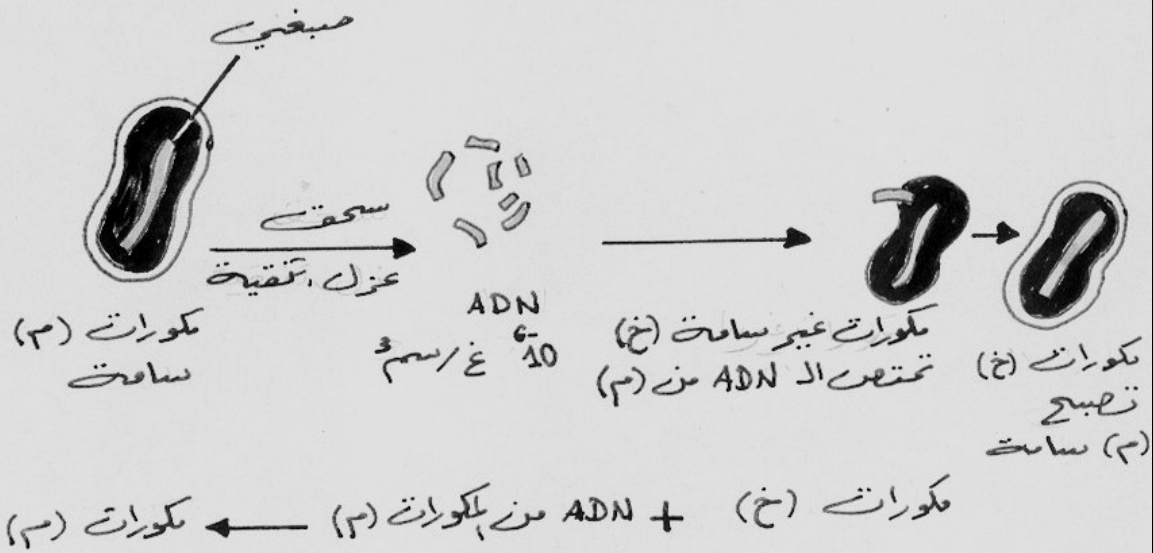 صبغي
سحق
عزل، تنقية
مكورات (م)
سامة
ADN
10⁻⁶ غ/سم³
مكورات غير سامة (خ)
تمتص الـ ADN من (م)
مكورات (خ)
تصبح
(م) سامة
مكورات (خ) + ADN من المكورات (م) ← مكورات (م)